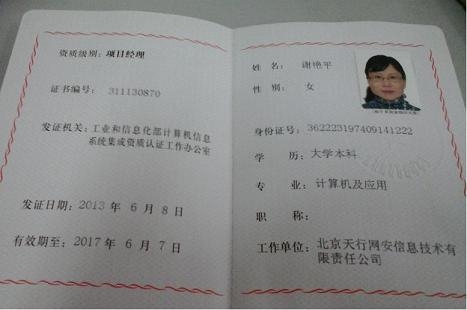 资质级别：项目经理
证书编号：311130870
发证机关：工业和信息化部计算机信息
系统集成资质认证工作办公室
发证日期：2013 年 6 月 8 日
有效期至：2017 年 6 月 7 日
姓 名：谢艳平
性 别：女
身份证号：362223197409141222
学 历：大学本科
专 业：计算机及应用
职 称：
工作单位：北京天行网安信息技术有
限责任公司